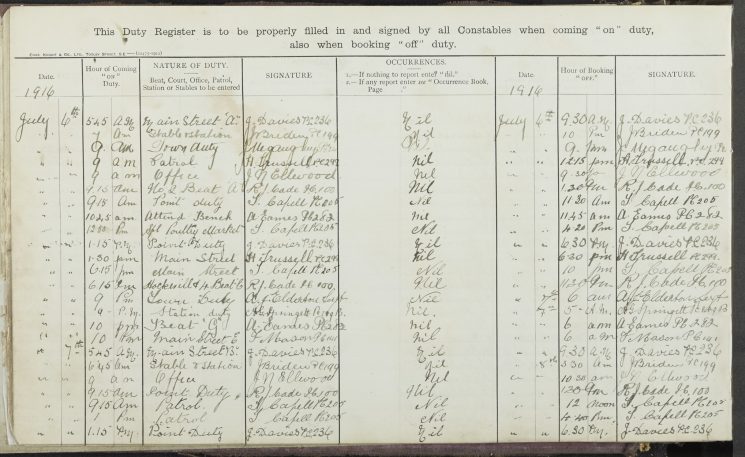 This Duty Register is to be properly filled in and signed by all Constables when coming "on" duty,
also when booking "off" duty.
Date. Hour of Coming "ON" Duty. NATURE OF DUTY. Beat, Court, Office, Patrol, Station or Stables to be entered SIGNATURE OCCURRENCES. 1.—If nothing to report enter "Nil." 2.—If any report enter see "Occurrence Book, Page ." Date. Hour of Booking "OFF." SIGNATURE.
1916 1916
July 6th 5.45 A.M. Main Street "A" J. Davies PC 236 Nil July 6th 9.30 A.M. J. Davies PC 236
" " 7 am Stable & station J Briden PC 199 Nil " " 10 Pm J Briden PC 199
" " 9 am Town duty " " 9 Pm
" " 9 am Patrol H Trussell PC 294 Nil " " 12.15 pm H Trussell PC 294
" " 9 am Office J N Ellwood Nil " " J N Ellwood
" " 9.15 am No 2 Beat "A" R J Cade PC 100 Nil " " 1.30 Pm R J Cade PC 100
" " 9.15 Am Point duty T. Capell PC 205 Nil " " 11.30 Am T. Capell PC 205
" " 10.45 am Attend Bench A Eames PC 282 Nil " " 11.45 am A Eames PC 282
" " Poultry Market T. Capell PC 205 Nil " " 4.20 Pm T. Capell PC 205
" " 1.15 P.M. Point Duty J. Davies PC 236 Nil " " 6.30 P.M. J. Davies PC 236
" " 1.30 pm Main Street H Trussell PC 294 Nil " " 6.30 pm H Trussell PC 294
" " 6.15 pm Main Street T. Capell PC 205 Nil " " 10 pm T. Capell PC 205
" " 6.15 Pm Beat R J Cade PC 100 Nil " " R J Cade PC 100
" " 9 Pm Town Duty A J Elderton Nil " 7th 6 am A J Elderton
" " 9 P.M. Station duty Nil " 7th 5
" " 10 pm Beat "G" A Eames PC 282 Nil " " 6 am A Eames PC 282
" " 10 Pm Main Street T. Mason PC Nil " " 6 am T. Mason PC
" 7th 5.45 A.M. Main Street "B" J. Davies PC 236 Nil " " 9.30 A.M. J. Davies PC 236
" " 6.45 am Stable & station J Briden PC 199 Nil " 8th J Briden PC 199
" " 9 am Office J N Ellwood Nil " " 10.30 am Ellwood
" " 9.15 am Point Duty R J Cade PC 100 Nil " " 1.30 Pm R J Cade PC 100
" " 9.15 Am Patrol T. Capell PC 205 Nil " " 12 noon T. Capell PC 205
" " Pm Patrol T. Capell PC 205 Nil " " 4.40 Pm T. Capell PC 205
" " 1.15 P.M. Point Duty J. Davies PC 236 Nil " " 6.30 P.M. J. Davies PC 236